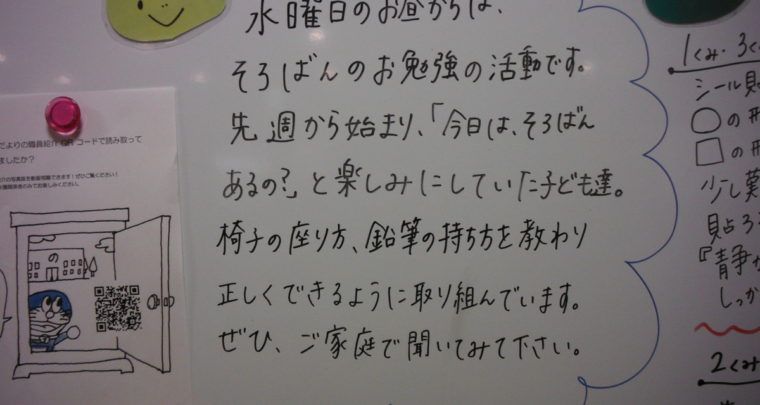 水曜日のお昼からは、
そろばんのお勉強の活動です。
先週から始まり、「今日は、そろばん
あるの?」と楽しみにしていた子ども達。
椅子の座り方、鉛筆の持ち方を教わり
正しくできるように取り組んでいます。
ぜひ、ご家庭で聞いてみて下さい。
だよりの職員紹介QRコードで読み取って
ましたか?
1くみ・3く
シール貼
○の形
□の形
少し難
貼ろう
『青争か
しっか
2くみ